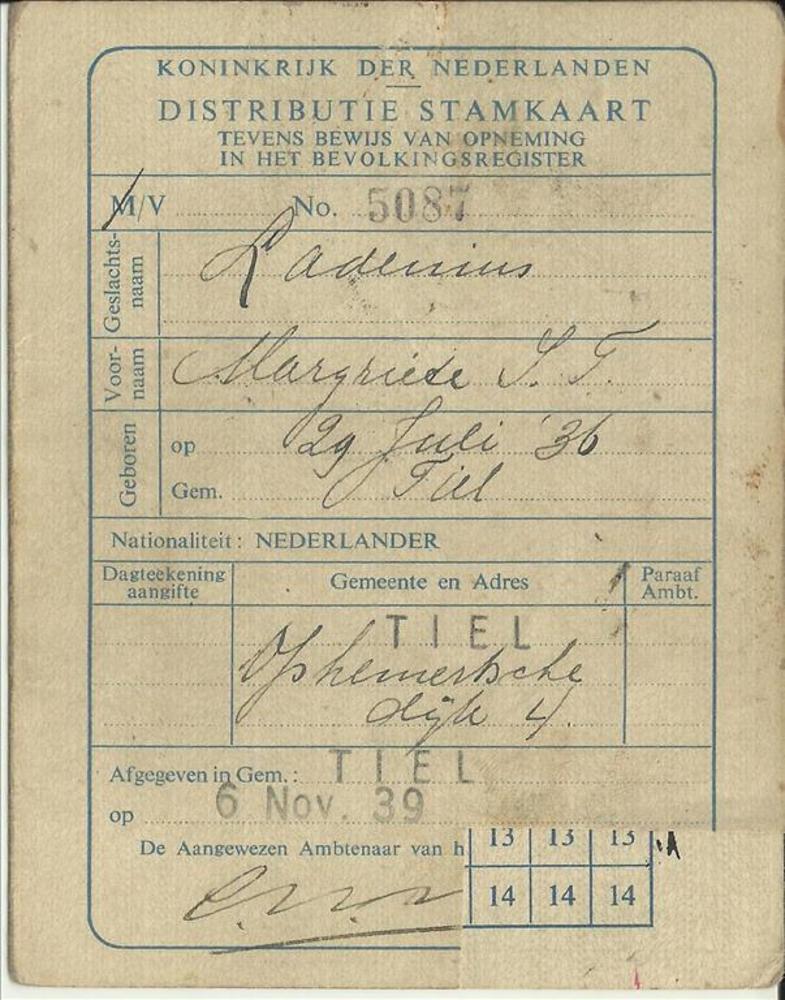 KONINKRIJK DER NEDERLANDEN
DISTRIBUTIE STAMKAART
TEVENS BEWIJS VAN OPNEMING
IN HET BEVOLKINGSREGISTER
M/V No. 5087
Geslachts-
naam
Ladenius
Voor-
naam
Margriete S. T.
Geboren
op 29 Juli '36
Gem. Tiel
Nationaliteit: NEDERLANDER
Dagteekening
aangifte
Gemeente en Adres
Paraaf
Ambt.
TIEL
Ophemertsche
dijk 4.
Afgegeven in Gem.: TIEL
op 6 Nov. 39
De Aangewezen Ambtenaar van h
13 13 13
14 14 14